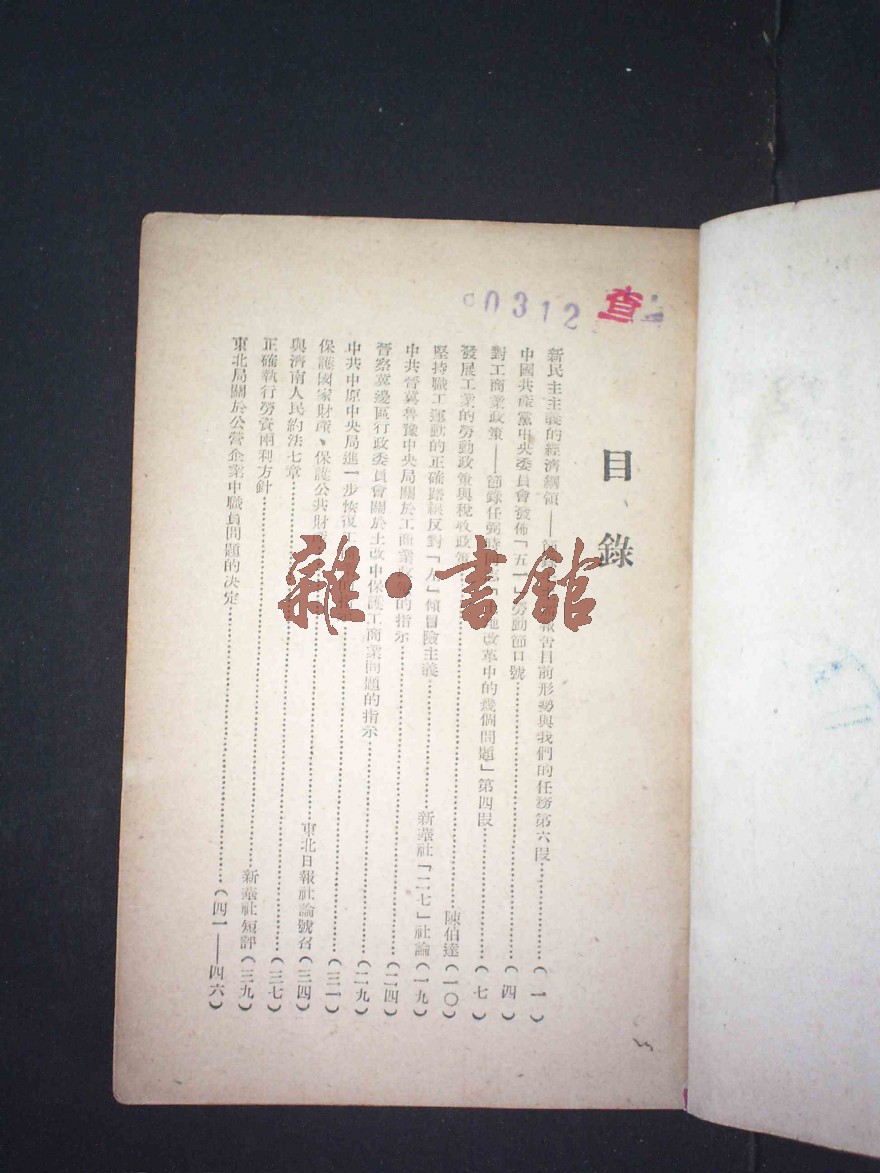 00312 查
目錄
新民主主義的經濟綱領——報告目前形勢與我們的任務第六段……(一)
中國共產黨中央委員會發佈「五一」勞動節口號……(四)
對工商業政策——節錄任弼時「土地改革中的幾個問題」第四段……(七)
發展工業的勞動政策與稅收政策……陳伯達(一〇)
堅持職工運動的正確路線反對「左」傾冒險主義……新華社「二七」社論(一九)
中共晉冀魯豫中央局關於工商業政策的指示……(二四)
晉察冀邊區行政委員會關於土改中保護工商業問題的指示……(二九)
中共中原中央局進一步恢復工……(三一)
保護國家財產、保護公共財……東北日報社論號召(三四)
與濟南人民約法七章……(三七)
正確執行勞資兩利方針……新華社短評(三九)
東北局關於公營企業中職員問題的決定……(四一——四六)
雜·書館